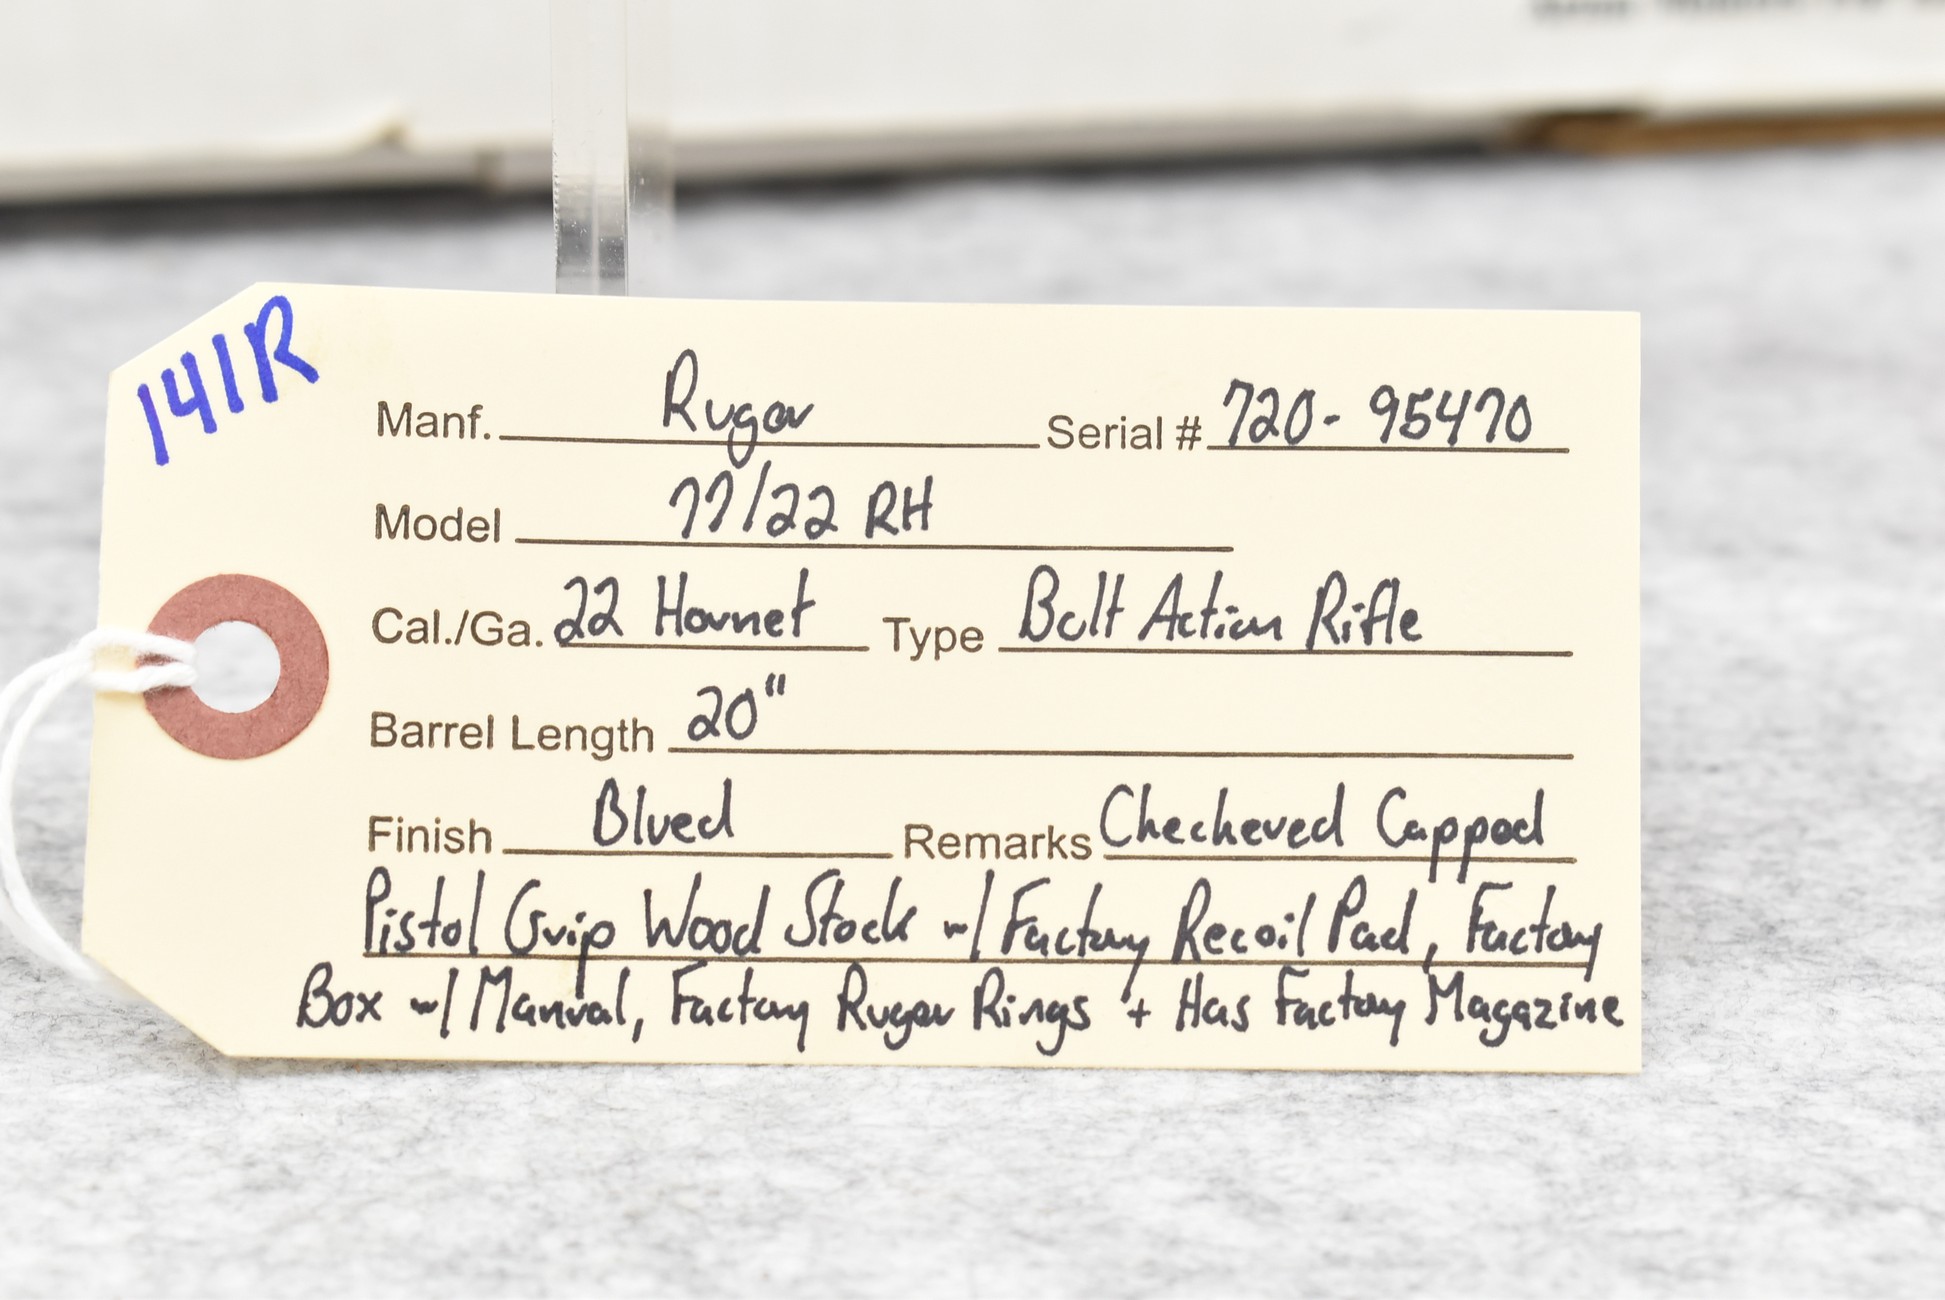 141R
Manf. Ruger Serial # 720-95470
Model 77/22 RH
Cal./Ga. 22 Hornet Type Bolt Action Rifle
Barrel Length 20"
Finish Blued Remarks Checkered Capped
Pistol Grip Wood Stock w/ Factory Recoil Pad, Factory
Box w/ Manual, Factory Ruger Rings + Has Factory Magazine